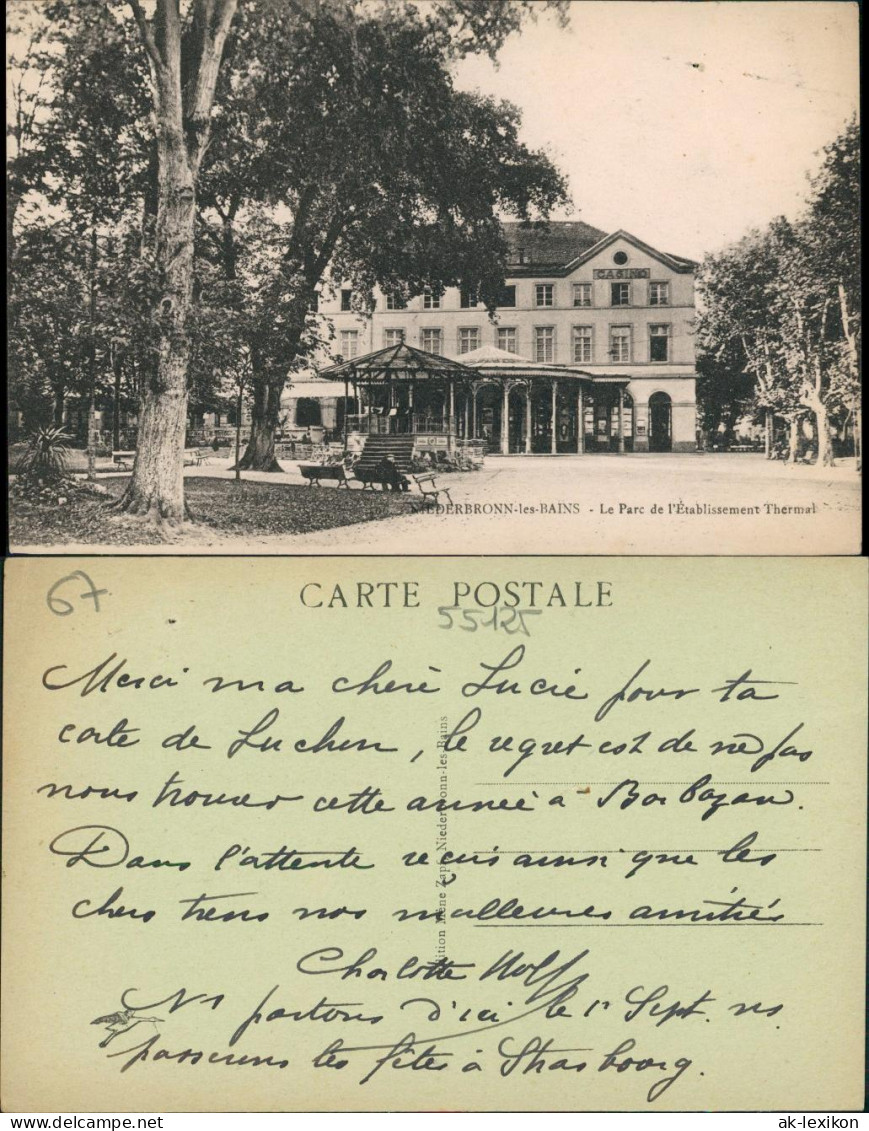 CASINO
NIEDERBRONN-les-BAINS - Le Parc de l'Établissement Thermal
67
CARTE POSTALE
55125
Merci ma chère Lucie pour ta
carte de Luchon, le regret est de ne pas
nous trouver cette année à Barbazan.
Dans l'attente reçois ainsi que les
chers tiens nos meilleures amitiés
Charlotte Wolf
Ns partons d'ici le 1r Sept. ns
passerons les fêtes à Strasbourg.
Edition Mène Zapf Niederbronn-les Bains
ak-lexikon